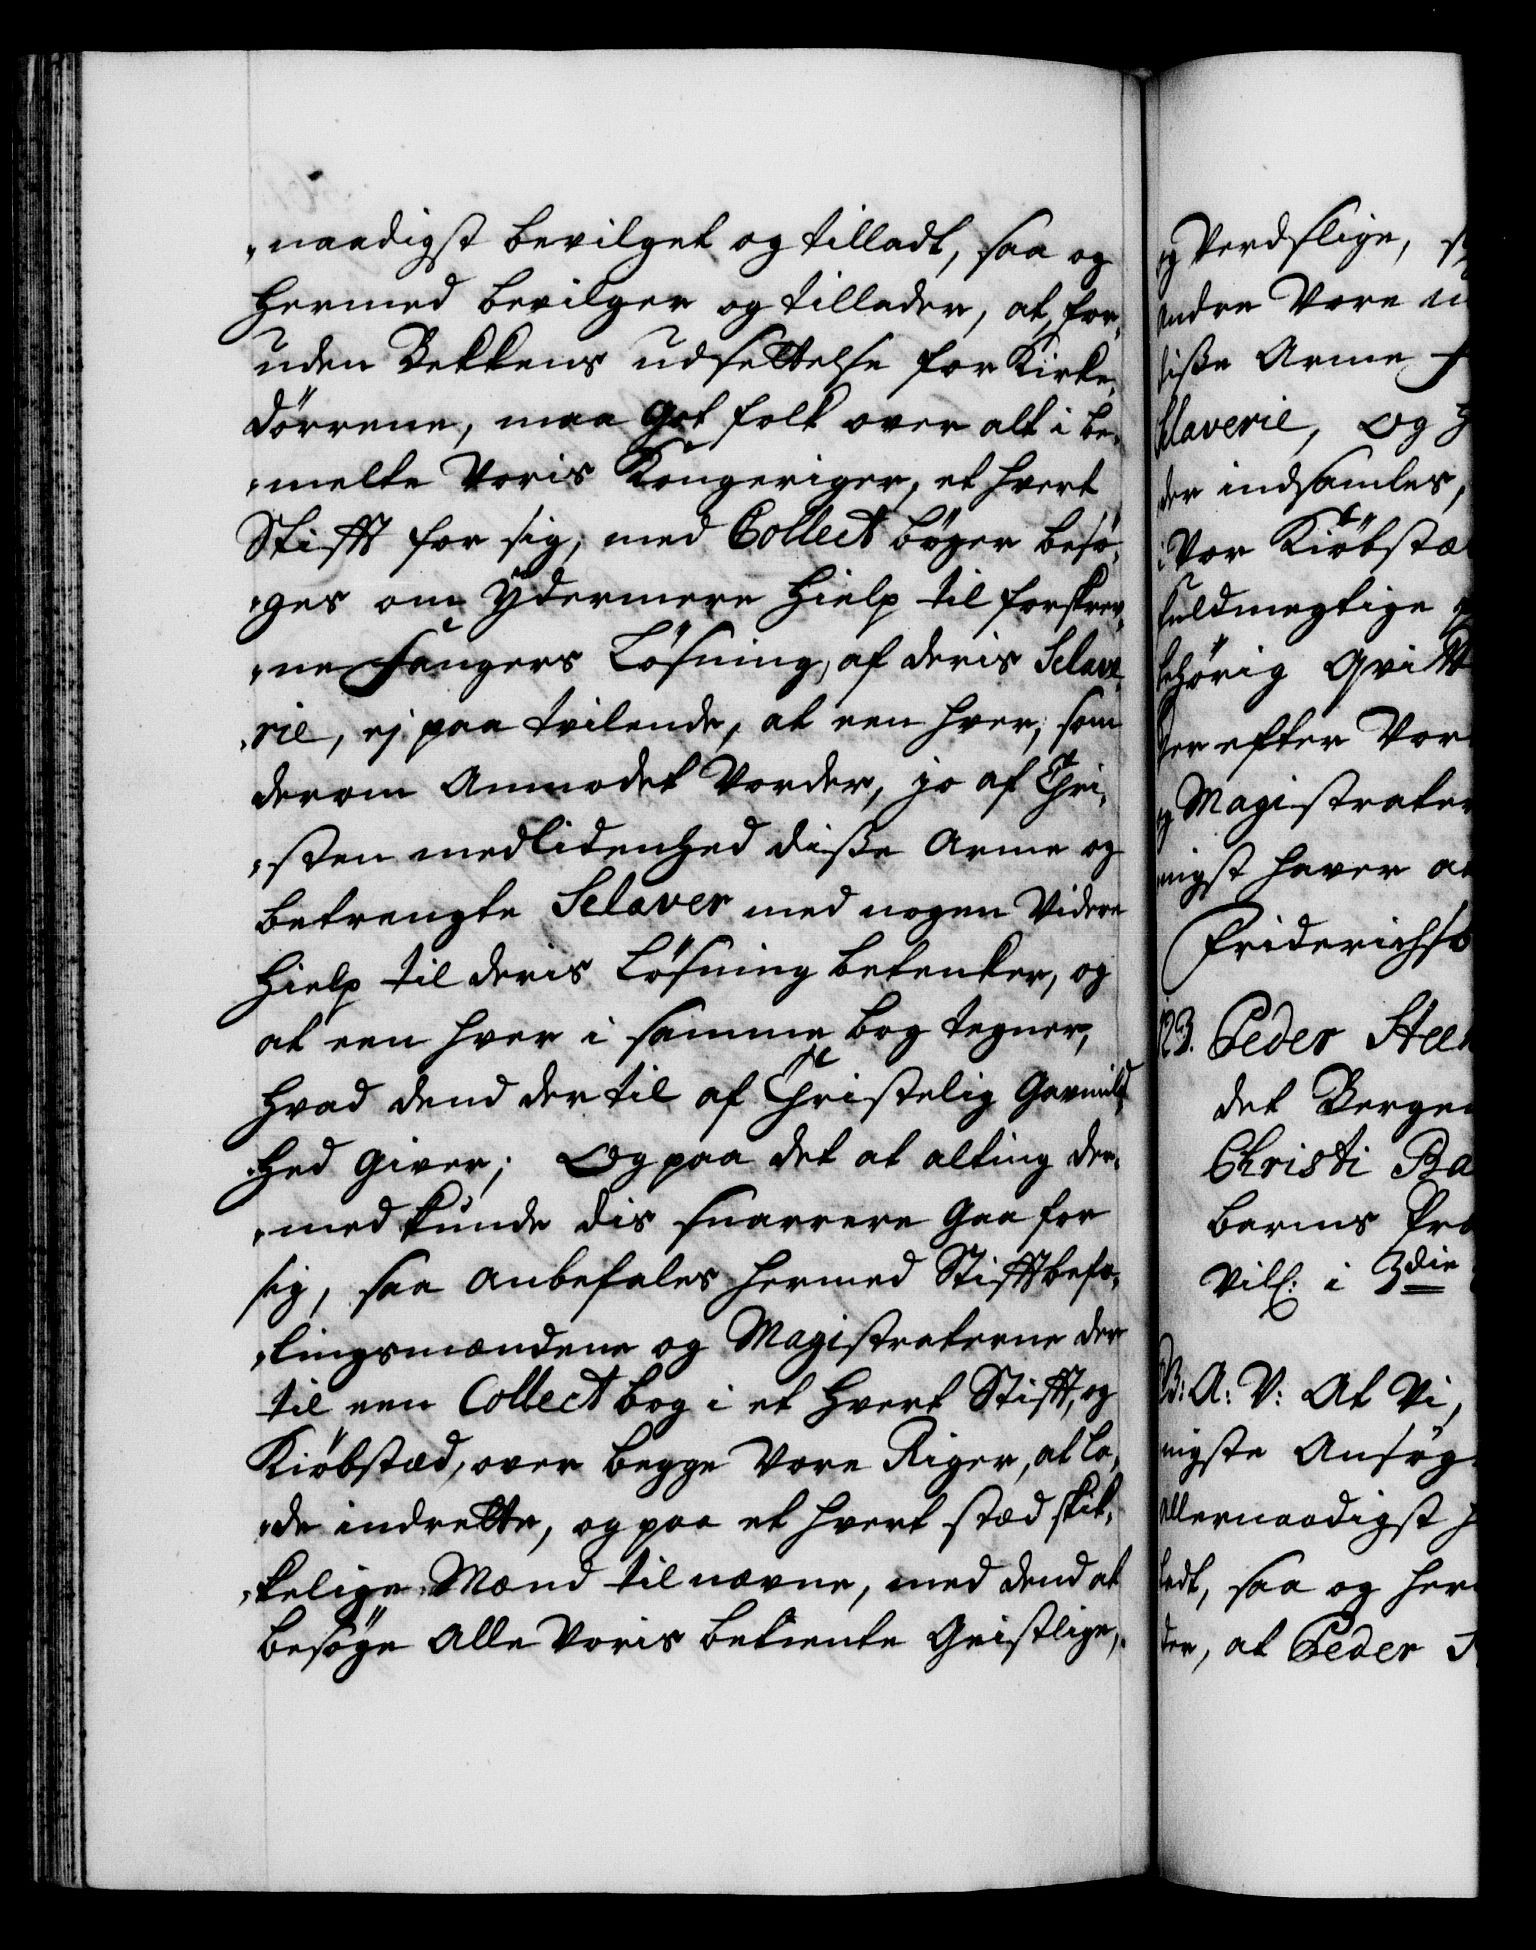 „naadigst bevilget og tilladt, saa og
hermed bevilger og tillader, at, for„
uden Bekkens udsettelse for Kirke„
dörrene, maa Got folk over alt i be„
„melte Voris Kongeriger, et hvert
Stifft for sig, med Collect böger besö„
„ges om ÿdermere Hielp til forskrev„
„ne fangers Lösning, af deris Sclave„
„rie, ej paa tvilende, at een hver, som
derom Anmodet Vorder, jo af Chri„
„sten medlidenhed diße Arme og
betrengte Sclaver med nogen Videre
Hielp til deris Lösning betenker, og
at een hver i samme bog tegner,
hvad dend der til af Christelig Gavmild„
„hed Giver; Og paa det at alting der„
„med kunde dis snarrere Gaa for
sig, saa Anbefales hermed Stifftbefa„
„lingsmændene og Magistraterne der
til een Collect bog i et hvert Stifft, og
Kiöbstæd, over begge Vore Riger, at la„
„de indrette, og paa et hvert stæd skik„
„kelige Mænd til nævne, med dend at
besöge Alle Voris betiente Geistlige,
og Verdslige,
andre Vore
diße Arme
Sclaverie, Og
der indsamles,
i Vor Kiöbstæ
fuldmegtige
behörig Qvitt
her efter Vor
og Magistrater
nigst haver at
Friderichs
123. Peder Steen
det Bergen
Christi Ba
barms Pro
Vill: i 3die
B: A: V: At Vi,
nigste Ansög
Allernaadigst
ladt, saa og her
der, at Peder